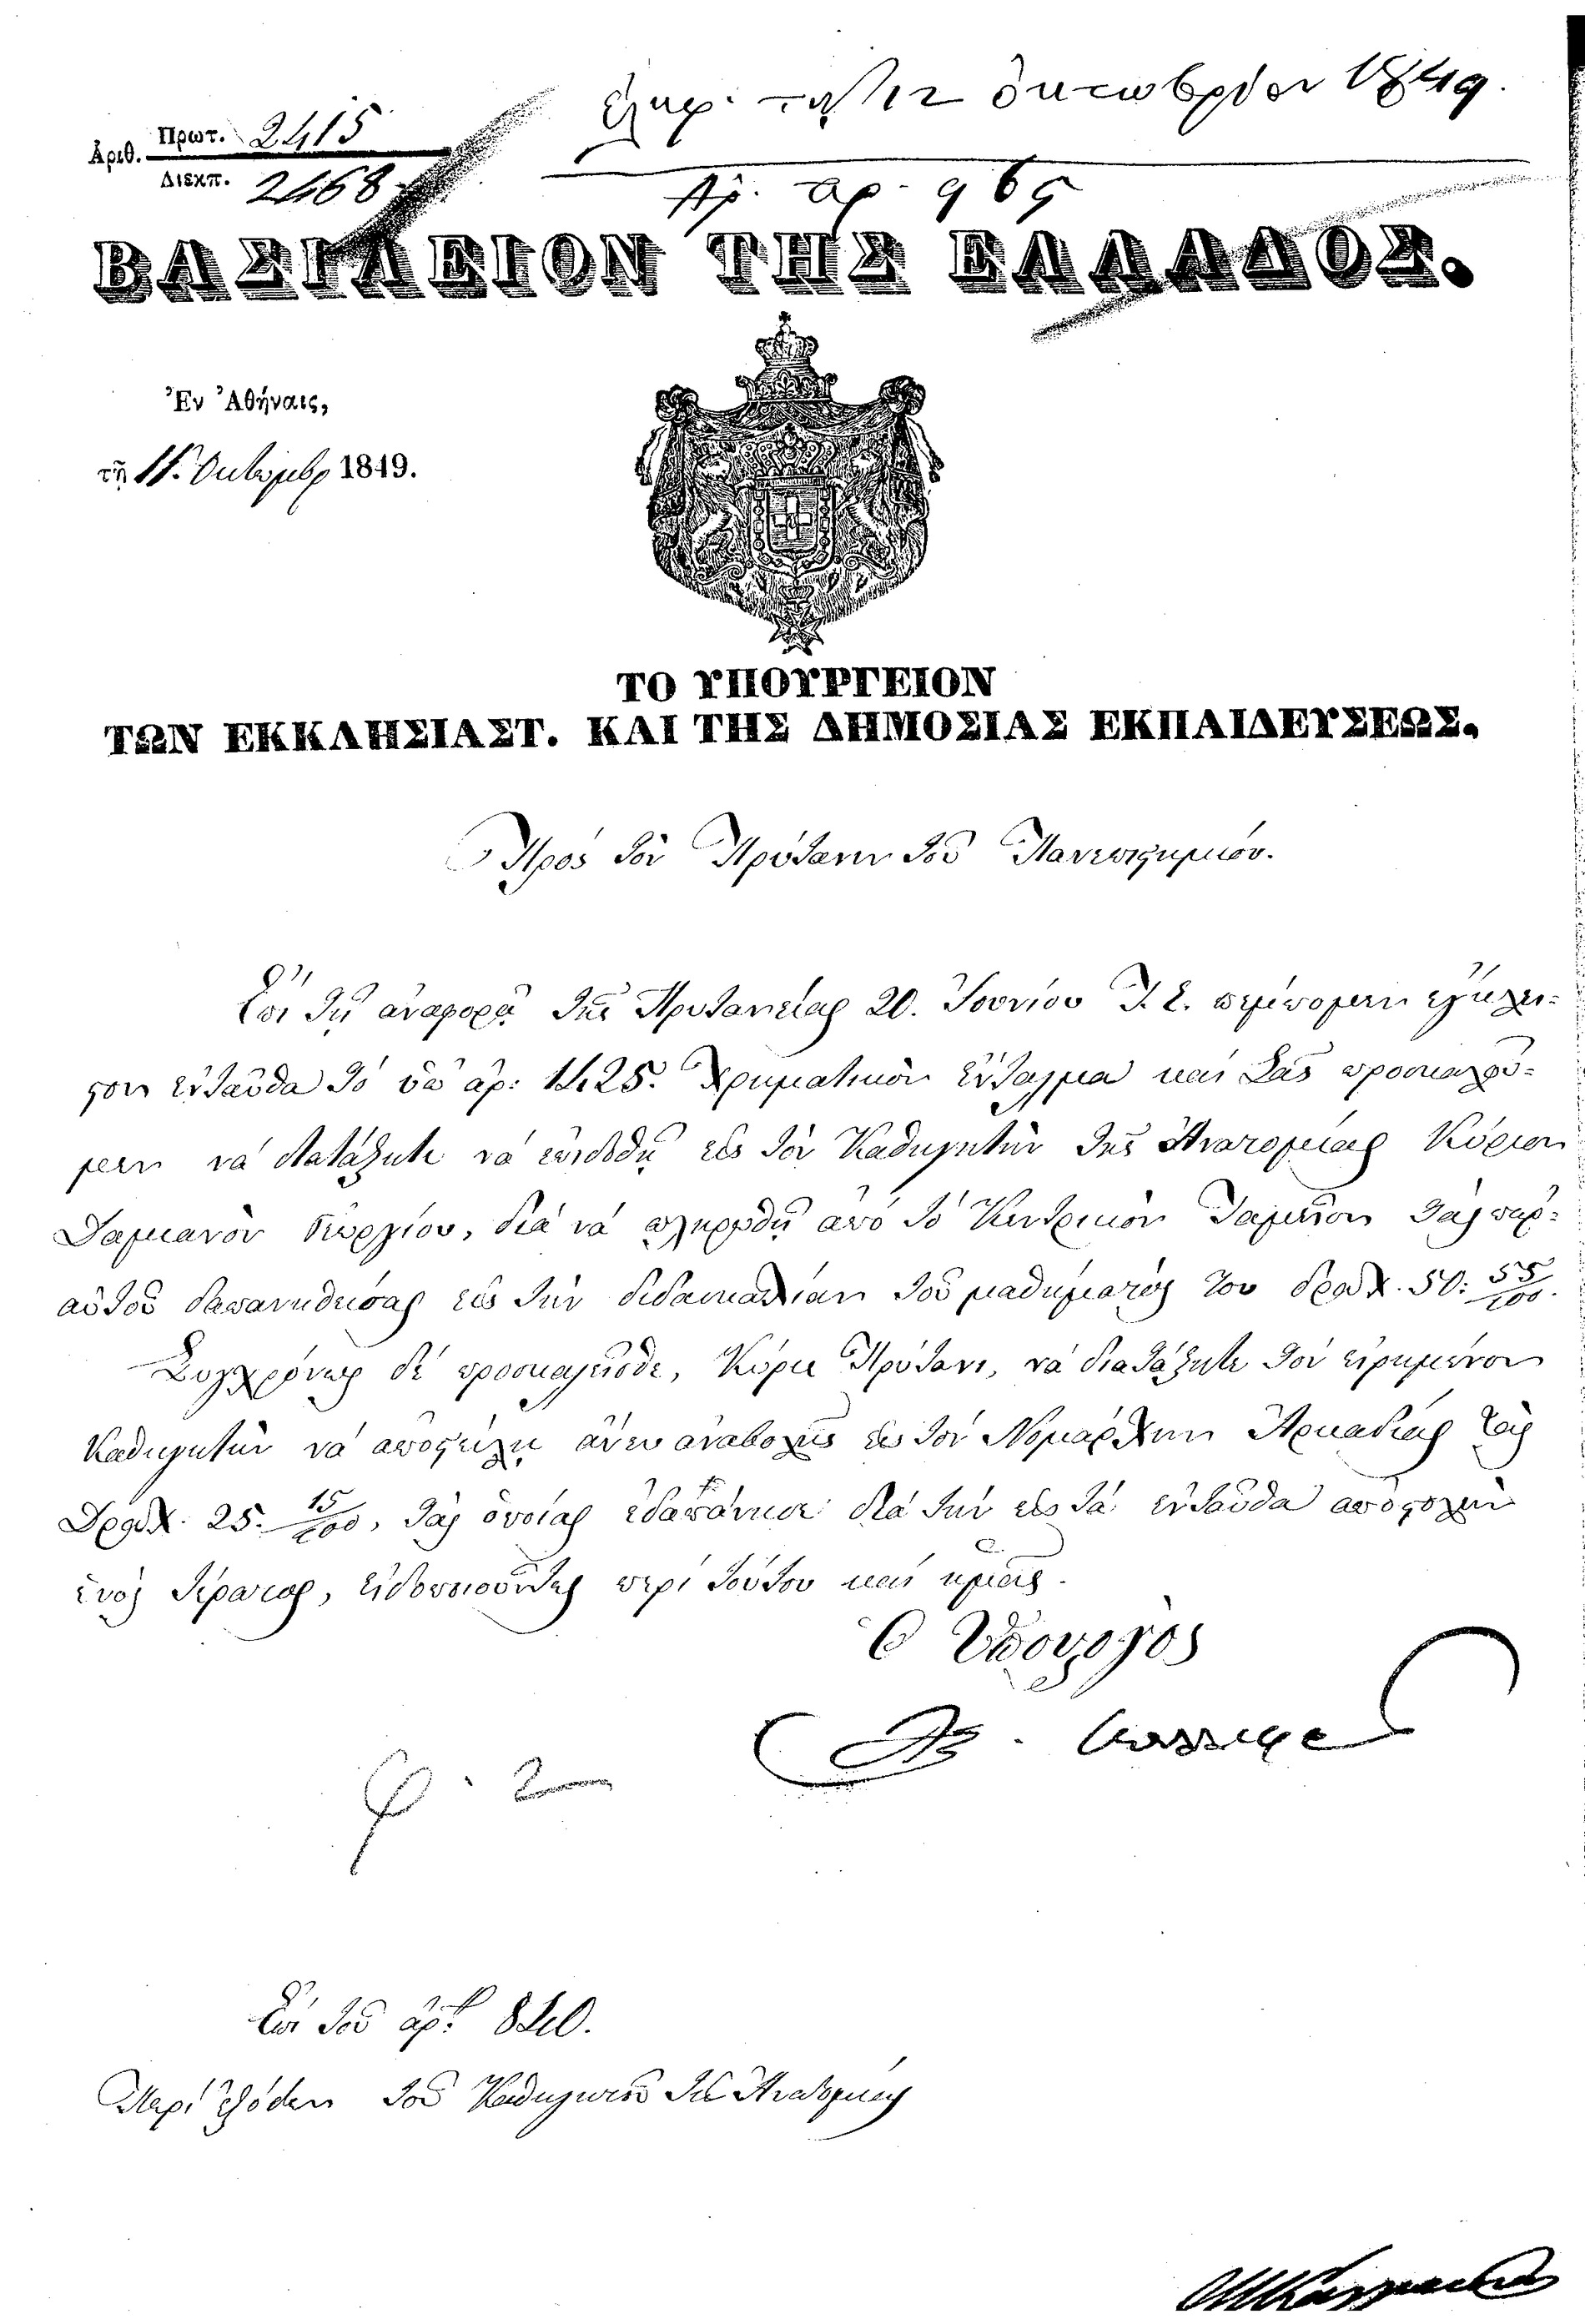 Ἀριθ. Πρωτ. 2415
Διεκπ. 2468
ἐλήφ. τῇ 12 ὀκτωβρίου 1849.
Ἀρ. πρ. 969
ΒΑΣΙΛΕΙΟΝ ΤΗΣ ΕΛΛΑΔΟΣ.
Ἐν Ἀθήναις,
τῇ 11. Ὀκτωμβρ 1849.
ΤΟ ΥΠΟΥΡΓΕΙΟΝ
ΤΩΝ ΕΚΚΛΗΣΙΑΣΤ. ΚΑΙ ΤΗΣ ΔΗΜΟΣΙΑΣ ΕΚΠΑΙΔΕΥΣΕΩΣ.
Πρὸς τὸν Πρύτανιν τοῦ Πανεπιστημίου.
Ἐπὶ τῇ ἀναφορᾷ τῆς Πρυτανείας 20. Ἰουνίου πέμπομεν ἐγκλει-
στον ἐνταῦθα τὸ ὑπ' ἀρ: 1425. χρηματικὸν ἔνταλμα καὶ Σᾶς προσκαλοῦ-
μεν νὰ διατάξητε νὰ ἐπιδοθῇ εἰς τὸν Καθηγητὴν τῆς Ἀνατομίας Κύριον
Δαμιανὸν Γεωργίου, διὰ νὰ πληρωθῇ ἀπὸ τὸ Κεντρικὸν Ταμεῖον τὰς παρ'
αὐτοῦ δαπανηθείσας εἰς τὴν διδασκαλίαν τοῦ μαθήματός του δραχ. 50: 55/100.
Συγχρόνως δὲ προσκαλεῖσθε, Κύριε Πρύτανι, νὰ διατάξητε τὸν εἰρημένον
Καθηγητὴν νὰ ἀποστείλῃ ἄνευ ἀναβολῆς εἰς τὸν Νομάρχην Ἀρκαδίας τὰς
Δραχ. 25. 15/100, τὰς ὁποίας ἐδαπάνησε διὰ τὴν εἰς τὰ ἐνταῦθα ἀποστολὴν
ἑνὸς τέρατος, εἰδοποιοῦντες περὶ τούτου καὶ ἡμᾶς.
Ὁ Ὑπουργὸς
φ. 2
Ἐπὶ τοῦ ἀρ. 840.
Περὶ ἐξόδων τοῦ Καθηγητοῦ τῆς Ἀνατομίας